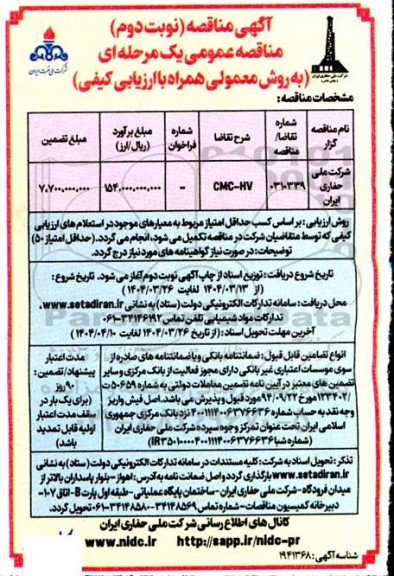 آگهی مناقصه (نوبت دوم)
مناقصه عمومی یک مرحله ای
(به روش معمولی همراه با ارزیابی کیفی)
شرکت ملی نفت ایران
شرکت ملی حفاری ایران
مشخصات مناقصه:
نام مناقصه گزار
شماره تقاضا/ مناقصه
شرح تقاضا
شماره فراخوان
مبلغ برآورد (ریال/ارز)
مبلغ تضمین
شرکت ملی حفاری ایران
۰۳۱۰۳۳۹
CMC-HV
-
۱۵۴,۰۰۰,۰۰۰,۰۰۰
۷,۷۰۰,۰۰۰,۰۰۰
روش ارزیابی: بر اساس کسب حداقل امتیاز مربوط به معیارهای موجود در استعلام های ارزیابی
کیفی که توسط متقاضیان شرکت در مناقصه تکمیل می شود، انجام می گردد. (حداقل امتیاز ۵۰)
توضیحات: در صورت نیاز گواهینامه های مورد نیاز درج گردد.
تاریخ شروع دریافت: توزیع اسناد از چاپ آگهی نوبت دوم آغاز می شود. تاریخ شروع:
(از ۱۴۰۴/۰۳/۱۳ لغایت ۱۴۰۴/۰۳/۲۶)
محل دریافت: سامانه تدارکات الکترونیکی دولت (ستاد) به نشانی www.setadiran.ir،
تدارکات مواد شیمیایی تلفن تماس ۳۴۱۴۶۱۹۲-۰۶۱
آخرین مهلت تحویل اسناد: (از تاریخ ۱۴۰۴/۰۳/۲۶ لغایت ۱۴۰۴/۰۴/۱۰)
انواع تضامین قابل قبول: ضمانتنامه بانکی و یا ضمانتنامه های صادره از
سوی موسسات اعتباری غیر بانکی دارای مجوز فعالیت از بانک مرکزی و سایر
تضمین های معتبر در آیین نامه تضمین معاملات دولتی به شماره ۵۰۶۵۹ت
/۱۲۳۴۰۲ مورخ ۹۴/۰۹/۲۲ مورد قبول و پذیرش می باشد. اصل فیش واریز
وجه نقد به حساب شماره ۴۰۰۱۱۱۴۰۰۶۳۷۶۶۳۶ نزد بانک مرکزی جمهوری
اسلامی ایران تحت عنوان تمرکز وجوه سپرده شرکت ملی حفاری ایران
(شماره شبا IR۳۵۰۱۰۰۰۰۴۰۰۱۱۱۴۰۰۶۳۷۶۶۳۶)
مدت اعتبار
پیشنهاد/تضمین:
۹۰ روز
(برای یک بار در
سقف مدت اعتبار
اولیه قابل تمدید
باشد)
تذکر: تحویل اسناد به شرکت: کلیه مستندات در سامانه تدارکات الکترونیکی دولت (ستاد) به نشانی
www.setadiran.ir بارگذاری گردد و اصل ضمانت نامه به آدرس: اهواز- بلوار پاسداران بالاتر از
میدان فرودگاه - شرکت ملی حفاری ایران - ساختمان پایگاه عملیاتی - طبقه اول پارت B - اتاق ۱۰۷-
دبیرخانه کمیسیون مناقصات- شماره تماس ۳۴۱۴۸۵۶۹-۳۴۱۴۸۵۸۰-۰۶۱ تحویل گردد.
کانال های اطلاع رسانی شرکت ملی حفاری ایران
www.nidc.ir http://sapp.ir/nidc-pr
شناسه آگهی: ۱۹۴۱۳۶۸